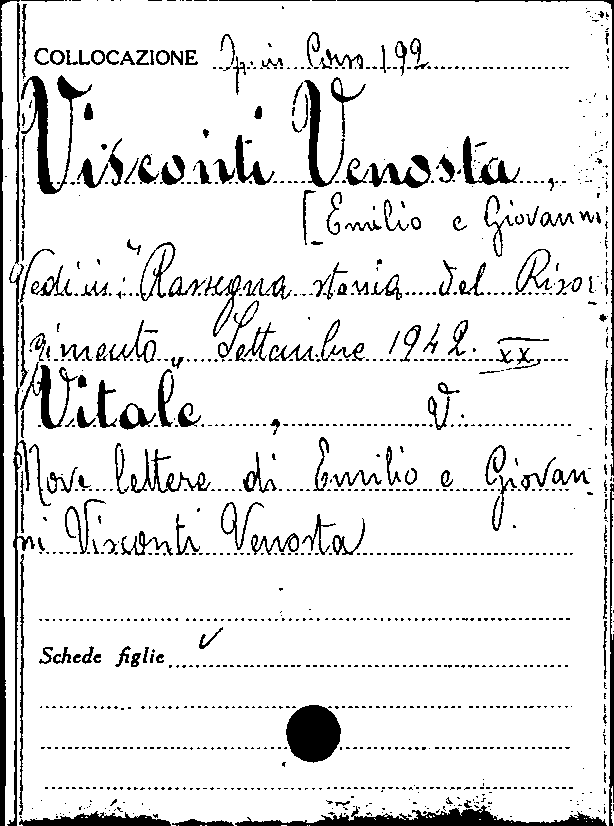 COLLOCAZIONE Op. in Corso 192
Visconti Venosta,
[Emilio e Giovanni
Vedi in: "Rassegna storica del Risor
gimento" Settembre 1942. XX
Vitale, V.
Nove lettere di Emilio e Giovan
ni Visconti Venosta
Schede figlie